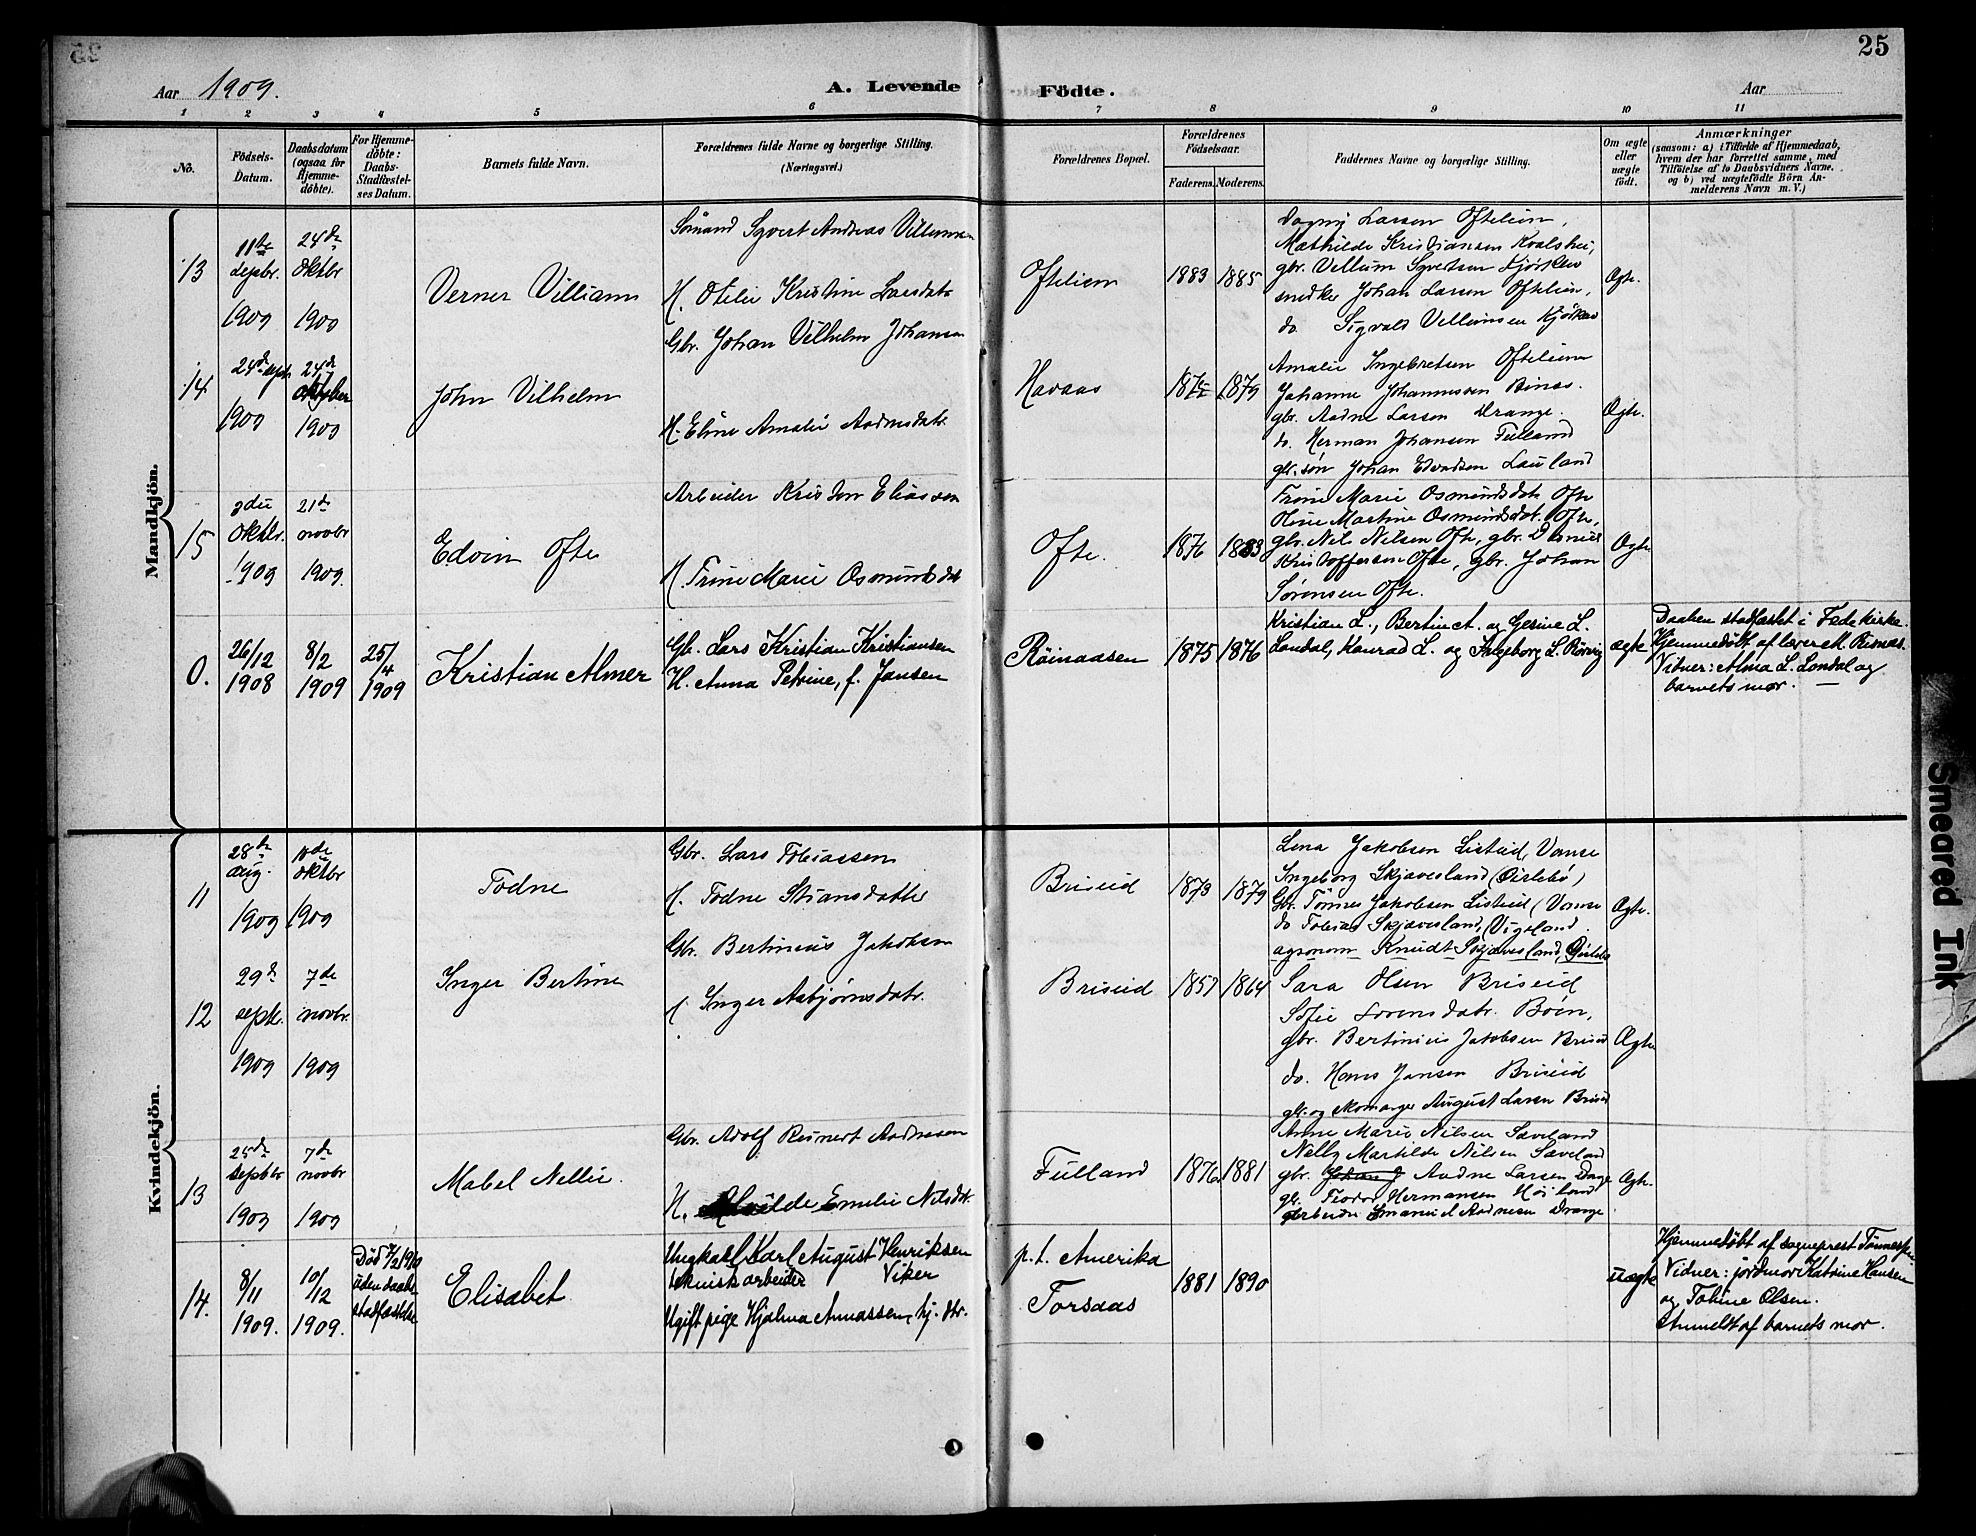 25
Aar 1909.
A. Levende Födte.
Aar
1 2 3 4 5 6 7 8 9 10 11
No.
Födsels-Datum.
Daabsdatum (ogsaa for Hjemme-döbte).
For Hjemme-döbte: Daabs-Stadfæstel-ses Datum.
Barnets fulde Navn.
Forældrenes fulde Navne og borgerlige Stilling.
(Næringsvei.)
Forældrenes Bopæl.
Forældrenes Födselsaar.
Faderens. Moderens.
Faddernes Navne og borgerlige Stilling.
Om ægte eller uægte födt.
Anmærkninger
(saasom: a) i Tilfælde af Hjemmedaab,
hvem der har forrettet samme, med
Tilföielse af to Daabsvidners Navne.
og b) ved uægtefödte Börn An-
melderens Navn m. V.)
Mandkjön.
13
11te septbr. 1909
24de oktbr 1909
Verner Villiam
Sömand Syvert Andreas Villumsen
H. Otilie Kristine Larsdatr
Oftelien
1883 1885
Dagny Larsen Oftelien,
Mathilde Kristiansen Kvalshei,
gbr. Villum Syvertsen Kjörkleiv
snedker Johan Larsen Oftelien,
do Sigvald Villumsen
Ægte.
14
24de septr 1909
24de oktober 1909
John Vilhelm
Gbr. Johan Vilhelm Johansen
H. Eline Amalie Aadnesdatr.
Havaas
1879
Amalie Ingebretsen Oftelien
Johanne Johannessen
gbr. Aadne Larsen Drange.
do. Herman Johansen Fulland
gbr. sön Johan Edvardsen Lauland
Ægte.
15
oktbr. 1909
21de novbr 1909.
Edvin Ofte
Arbeider Kristen Eliassen
H. Trine Marie Osmundsdatr
Ofte.
1876 1883
Trine Marie Osmundsdatr Ofte
Oline Martine Osmundsdat. Ofte,
gbr. Nils Nilsen Ofte, gbr. Daniel
Kristoffersen Ofte, gbr. Johan
Sörensen Ofte.
Ægte
0.
26/12 1908
8/2 1909
25/4 1909
Kristian Almer
Gb. Lars Kristian Kristiansen
H. Anna Petrine, f. Jansen
Röinaasen
1875 1876
Kristian L., Bertine A. og Gesine L.
Londal, Konrad L. og Ingeborg L. Rörvig
ægte
Daaben stadfæstet i Fede kirke.
Hjemmedöbt af lærer M. Risnæs.
Vidner: Alma L. Londal og
barnets mor. —
Kvindekjön.
11
28de aug. 1909
10de oktbr 1909
Todne
Gbr. Lars Tobiassen
H. Todne Stiansdatter
Briseid
1873 1879
Lena Jakobsen Listeid, Vanse
Ingeborg Skjævesland (Öislebö)
Gbr. Tönnes Jakobsen Listeid (Vanse
do Tobias Skjævesland, (Vigeland
agronom Knudt Skjævesland, Öislebö
Ægte.
12
29de septr. 1909
7de novbr. 1909
Inger Bertine
Gbr. Bertinius Jakobsen
H. Inger Asbjörnsdatr.
Briseid
1857 1864
Sara Olsen Briseid
Sofie Sorensdatr. Böen,
gbr. Bertinius Jakobsen Briseid
do. Hans Jansen Briseid
gbr. og skomager August Larsen Briseid
Ægte
13
25de septbr 1909
7de novbr 1909
Mabel Nellie.
Gbr. Adolf Reinert Aadnesen
H. Emelie Nilsdtr.
Fulland
1876 1881
Anne Marie Nilsen Sæveland
Nelly Martilde Nilsen Sæveland
gbr. Aadne Larsen Drange
gb. Teodor Hermansen
arbeider Emanuel Aadnesen Drange.
Ægte.
14.
8/11 1909.
10/12 1909.
Död 7/2 1910
uden daabs-
stadfæstelse
Elisabet
Ungkarl Karl August Henriksen
teknisk arbeider Viker
Ugift pige Hjalma Annassen, hj. dtr.
p.t. Amerika
Torsaas
1881 1890
uægte
Hjemmedöbt af sogneprest Tönnessen.
Vidner: jordmor Katrine Hansen
og Tobine Olsen.
Anmeldt af barnets mor.
Smeared Ink